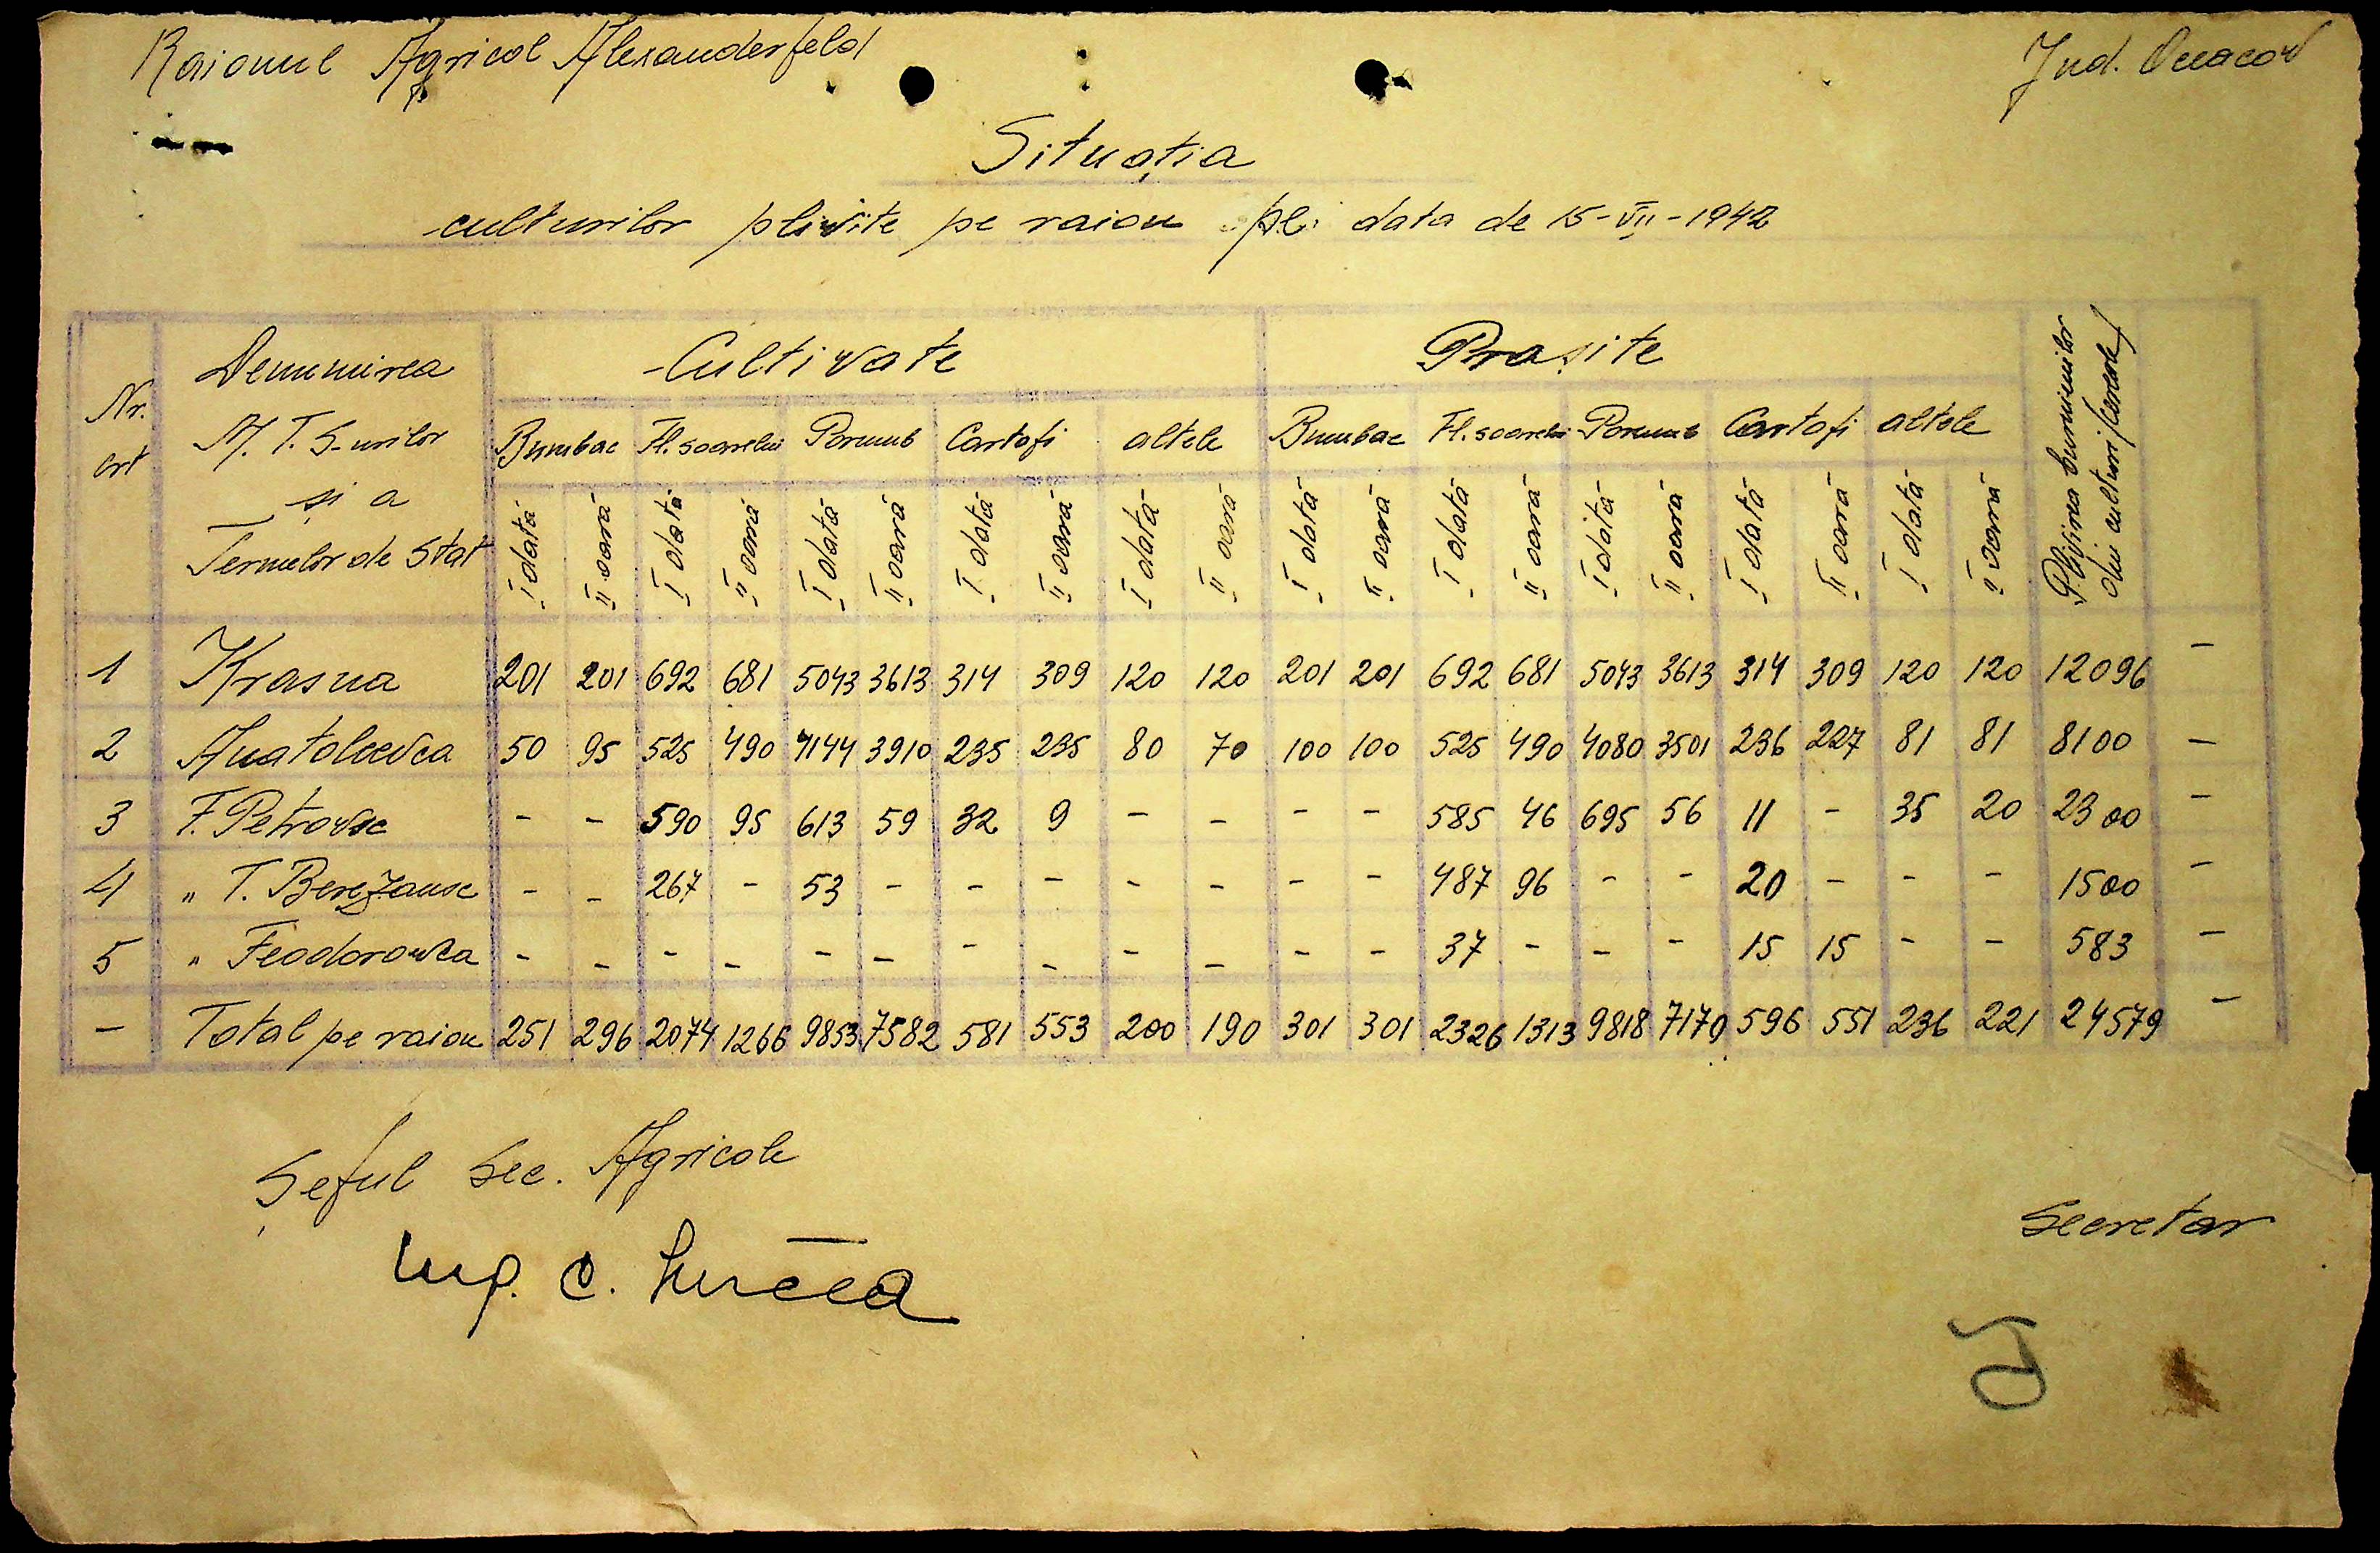 Raionul Agricol Alexanderfeld
Jud. Oceacov
Situația
culturilor plivite pe raion pe data de 15-VII-1942
Nr. crt
Denumirea M. T. S-urilor și a Fermelor de Stat
Cultivate
Prașite
Plivirea buruienilor din culturi (cereale)
Bumbac Fl. soarelui Porumb Cartofi altele Bumbac Fl. soarelui Porumb Cartofi altele
I dată II oară I dată II oară I dată II oară I dată II oară I dată II oară I dată II oară I dată II oară I dată II oară I dată II oară I dată II oară
1 Krasna 201 201 692 681 5043 3613 314 309 120 120 201 201 692 681 5043 3613 314 309 120 120 12096 -
2 Anatolievca 50 95 525 490 4144 3910 235 235 80 70 100 100 525 490 4080 3501 236 227 81 81 8100 -
3 F. Petrovsc - - 590 95 613 59 32 9 - - - - 585 46 695 56 11 - 35 20 2300 -
4 " T. Berezansc - - 267 - 53 - - - - - - - 487 96 - - 20 - - - 1500 -
5 " Feodorowca - - - - - - - - - - - - 37 - - - 15 15 - - 583 -
- Total pe raion 251 296 2074 1266 9853 7582 581 553 200 190 301 301 2326 1313 9818 7170 596 551 236 221 24579 -
Șeful Sec. Agricole
Secretar
Ing. C.